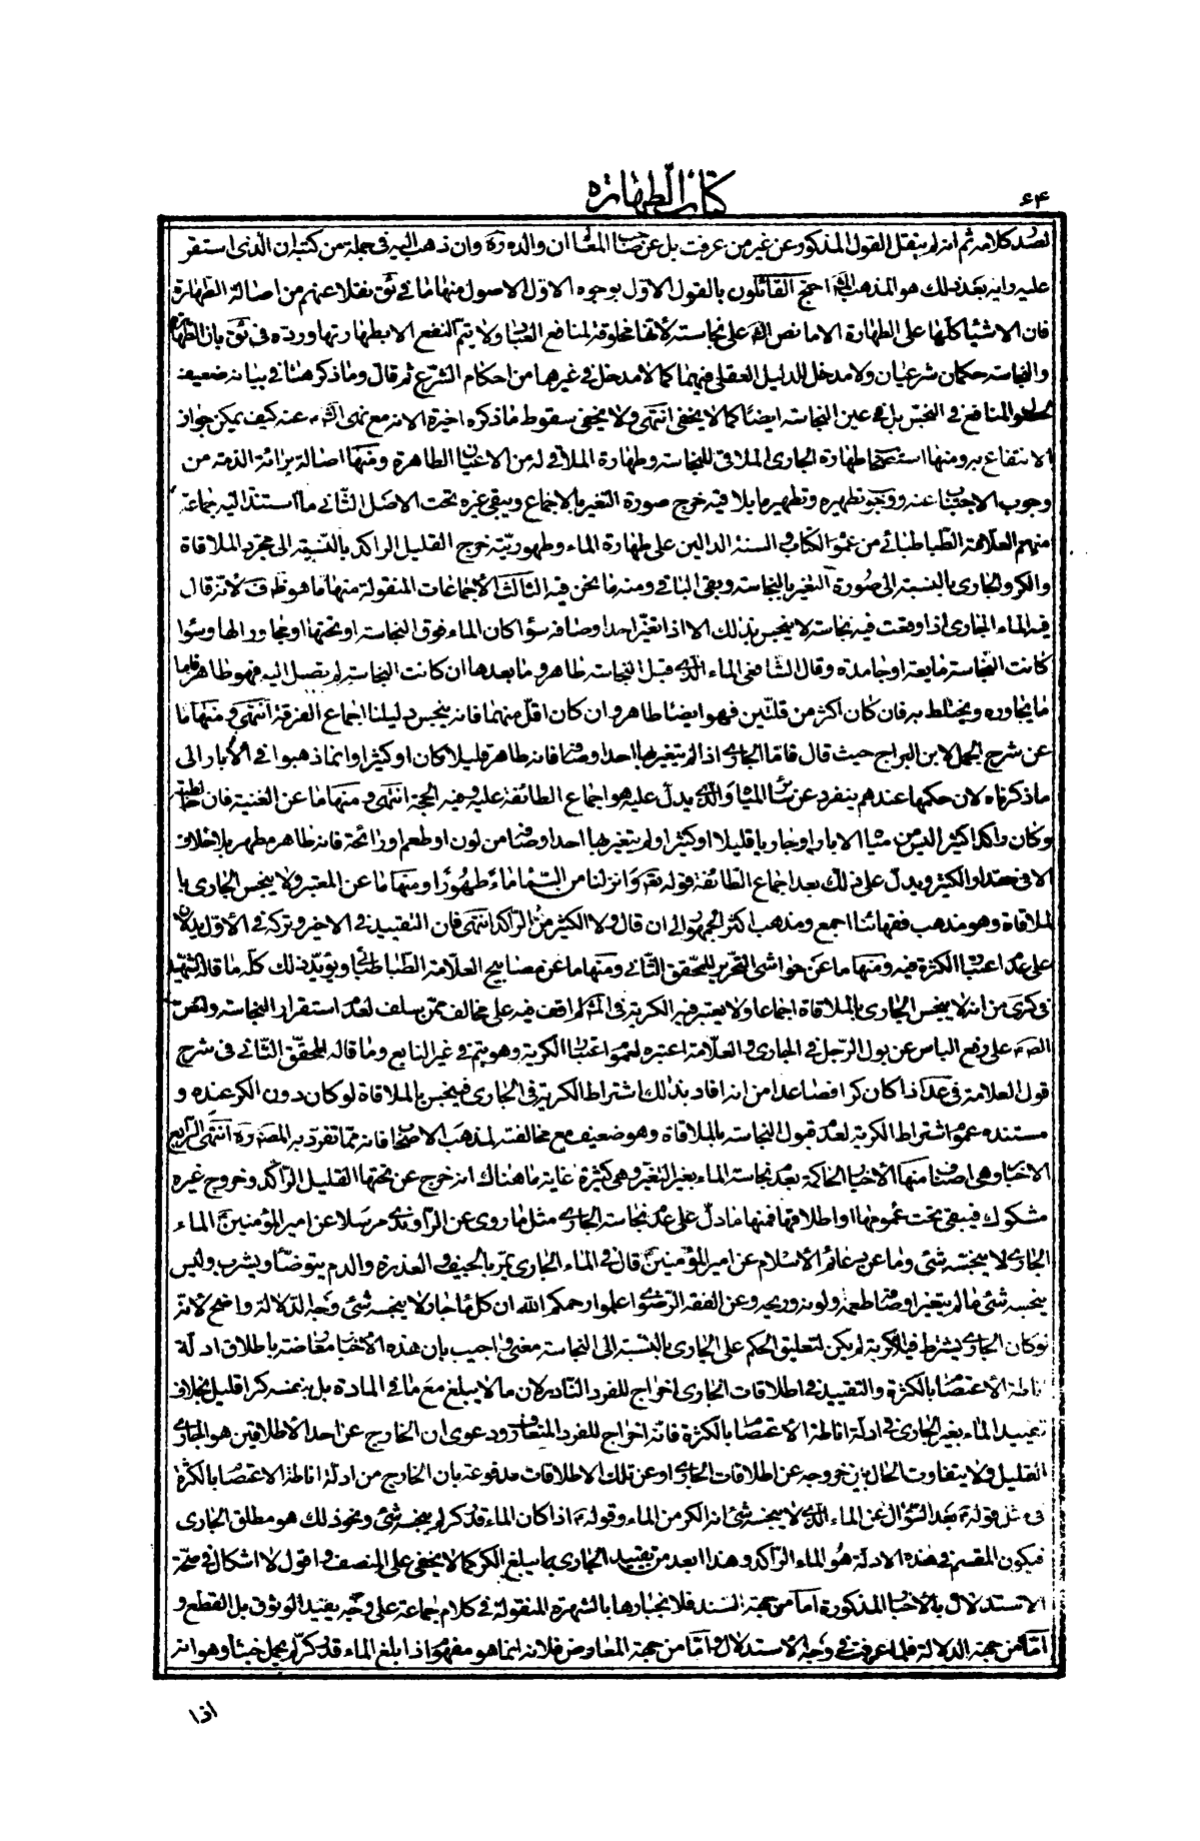 كتاب الطهارة
۶۴
لصدر كلامه ثم انه لم ينقل القول المذكور عن غير من عرفت بل عن صاحب المعالم ان والده ره وان ذهب اليه فى جملة من كتبه ان الذى استقر
عليه رايه بعد ذلك هو المذهب احتج القائلون بالقول الاول بوجوه الاول الاصول منها ما فى ئق نقلا عنهم من اصالة الطهارة
فان الاشياء كلها على الطهارة الا ما نص الش على نجاسته لانها مخلوقة لمنافع العباد ولا يتم النفع الا بطهارتها ورده فى ئق بان الطهارة
والنجاسة حكمان شرعيان ولا مدخل للدليل العقلى فيهما كما لا مدخل فى غيرهما من احكام الشرع ثم قال وما ذكر هنا فى بيانه ضعيف
المنافع فى النجس بل فى عين النجاسة ايضا كما لا يخفى انتهى ولا يخفى سقوط ما ذكره اخيرة لانه مع نهى الش عنه كيف يمكن جواز
الانتفاع به ومنها استصحاب طهارة الجارى الملاقى للنجاسة وطهارة الملاقى له من الاعيان الطاهرة ومنها اصالة برائة الذمة من
وجوب الاجتناب عنه ووجوب تطهيره وتطهير ما يلاقيه خرج صورة التغير بالاجماع ويبقى غيره تحت الاصل الثانى ما استند اليه جماعة
منهم العلامة الطباطبائى من عموم الكتاب والسنة الدالين على طهارة الماء وطهوريته خرج القليل الراكد بالنسبة الى مجرد الملاقاة
والكر والجارى بالنسبة الى صورة التغير بالنجاسة وبقى الباقى ومنه ما نحن فيه الثالث الاجماعات المنقولة منها ما هو ظ ف لانه قال
فيه الماء الجارى اذا وقعت فيه نجاسة لا ينجس بذلك الا اذا تغير احد اوصافه سواء كان الماء فوق النجاسة او تحتها او مجاورا لها وسواء
كانت النجاسة مايعة او جامدة وقال الشافعى الماء الذى قبل النجاسة طاهر وما بعدها ان كانت النجاسة لم يصل اليه فهو طاهر فاما
ما يجاوره ويختلط به فان كان اكثر من قلتين فهو ايضا طاهر وان كان اقل منهما فانه ينجس دليلنا اجماع الفرقة انتهى ومنها ما
عن شرح الجمل لابن البراج حيث قال فاما الجارى اذا لم يتغير بها احد اوصافه فانه طاهر قليلا كان او كثيرا وانما ذهبوا فى الابار الى
ما ذكرناه لان حكمها عندهم ينفرد عن سائر المياه والذى يدل عليه هو اجماع الطائفة عليه وفيه الحجة انتهى ومنها ما عن الغنية فان خالطته
وكان راكدا كثيرا ليس من مياه الابار او جاريا قليلا او كثيرا ولم يتغير بها احد اوصافه من لون او طعم او رائحة فانه طاهر مطهر بلا خلاف
الا فى حد الكثير ويدل على ذلك بعد اجماع الطائفة قوله تعالى وانزلنا من السماء ماء طهورا ومنها ما عن المعتبر ولا ينجس الجارى با
لملاقاة وهو مذهب فقهائنا اجمع ومذهب اكثر الجمهور الى ان قال ولا الكثير من الراكد انتهى فان التقييد فى الاخير وتركه فى الاول يدلان
على عدم اعتبار الكثرة فيه ومنها ما عن حواشى التحرير للمحقق الثانى ومنها ما عن مصابيح العلامة الطباطبائى ويؤيد ذلك كله ما قاله الشهيد
فى كرى من انه لا ينجس الجارى بالملاقاة اجماعا ولا يعتبر فيه الكرية فى المش لم اقف فيه على مخالف ممن سلف لعدم استقرار النجاسة ولنص
الص ع على رفع الباس عن بول الرجل فى الجارى والعلامة اعتبره لعموم اعتبار الكرية وهو يتم فى غير النابع وما قاله المحقق الثانى فى شرح
قول العلامة فى عد اذا كان كرا فصاعدا من انه افاد بذلك اشتراط الكرية فى الجارى فينجس بالملاقاة لو كان دون الكر عنده و
مستنده عموم اشتراط الكرية لعدم قبول النجاسة بالملاقاة وهو ضعيف مع مخالفته لمذهب الاصحاب فانه مما تفرد به المصنف ره انتهى الرابع
الاخبار وهى اصناف منها الاخبار الحاكمة بعدم نجاسة الماء بغير التغير وهى كثيرة غاية ما هناك انه خرج عن تحتها القليل الراكد وخروج غيره
مشكوك فيبقى تحت عمومها او اطلاقها فمنها ما دل على عدم نجاسة الجارى مثل ما روى عن الراوندى مرسلا عن امير المؤمنين ع الماء
الجارى لا ينجسه شئ وما عن دعائم الاسلام عن امير المؤمنين ع قال فى الماء الجارى يمر بالجيف والعذرة والدم يتوضأ ويشرب وليس
ينجسه شئ ما لم يتغير اوصافه طعمه ولونه وريحه وعن الفقه الرضوى اعلموا رحمكم الله ان كل ماء جار لا ينجسه شئ وجه الدلالة واضح لانه
لو كان الجارى يشترط فيه الكرية لم يكن لتعليق الحكم على الجارى بالنسبة الى النجاسة معنى واجيب بان هذه الاخبار معارضة باطلاق ادلة
اناطة الاعتصام بالكثرة والتقييد فى اطلاقات الجارى اخراج للفرد النادر لان ما لا يبلغ مع ما فى المادة بل بنفسه كرا قليل بخلاف
تقييد الماء بغير الجارى فى ادلة اناطة الاعتصام بالكثرة فانه اخراج للفرد المتعارف ودعوى ان الخارج عن احد الاطلاقين هو الجارى
القليل ولا يتفاوت الحال بين خروجه عن اطلاقات الجارى او عن تلك الاطلاقات مدفوعة بان الخارج من ادلة اناطة الاعتصام بالكثرة
فى مثل قوله ع بعد السؤال عن الماء الذى لا ينجسه شئ انه الكر من الماء وقوله ع اذا كان الماء قدر كر لم ينجسه شئ ونحو ذلك هو مطلق الجارى
فيكون المقسم فى هذه الادلة هو الماء الراكد وهذا ابعد من تقييد الجارى بما يبلغ الكر كما لا يخفى على المنصف واقول لا اشكال فى صحة
الاستدلال بالاخبار المذكورة اما من جهة السند فلانجبارها بالشهرة المنقولة فى كلام جماعة على وجه يفيد الوثوق بل القطع و
اما من جهة الدلالة فلما عرفت فى وجه الاستدلال واما من جهة المعارض فلانه انما هو مفهوم اذا بلغ الماء قدر كر لم يحمل خبثا وهو انه
اذا